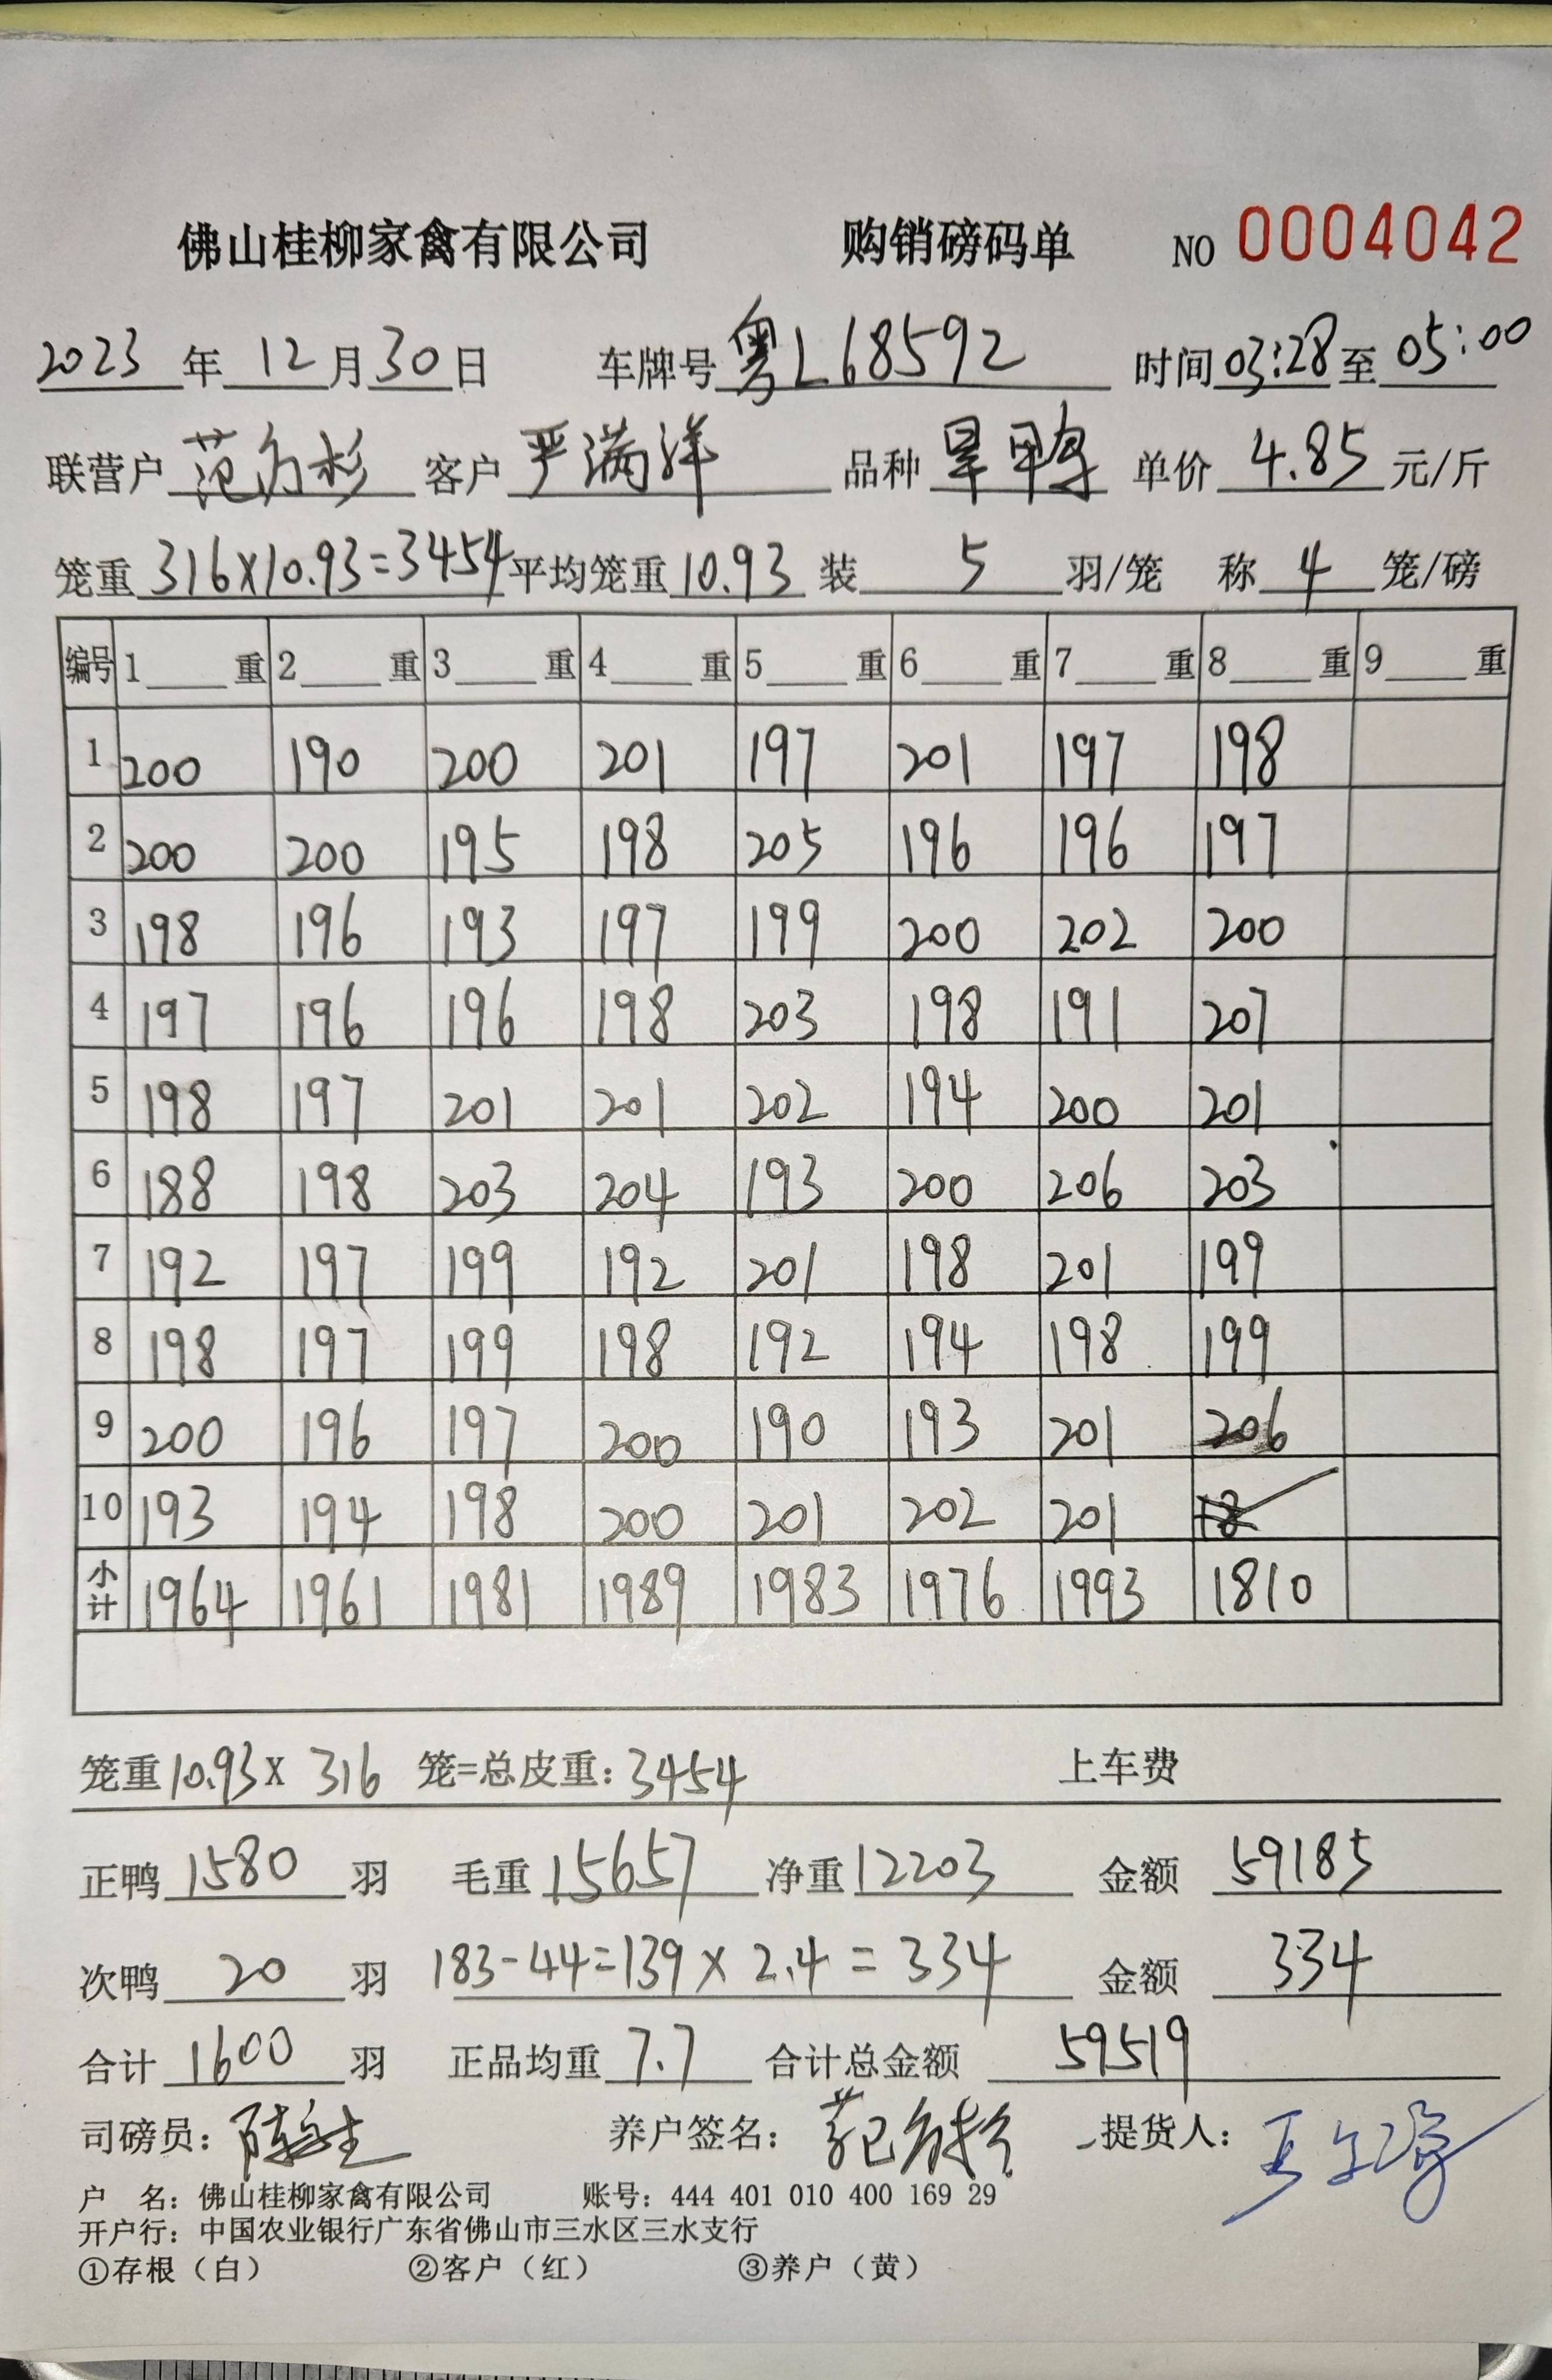 佛山桂柳家禽有限公司 购销磅码单 NO 0004042
2023 年 12 月 30 日 车牌号 粤L68592 时间 03:28 至 05:00
联营户 范为杉 客户 严满洋 品种 旱鸭 单价 4.85 元/斤
笼重 316×10.93=3454 平均笼重 10.93 装 5 羽/笼 称 4 笼/磅
编号 1 重 2 重 3 重 4 重 5 重 6 重 7 重 8 重 9 重
1 200 190 200 201 197 201 197 198
2 200 200 195 198 205 196 196 197
3 198 196 193 197 199 200 202 200
4 197 196 196 198 203 198 191 207
5 198 197 201 201 202 194 200 201
6 188 198 203 204 193 200 206 203
7 192 197 199 192 201 198 201 199
8 198 197 199 198 192 194 198 199
9 200 196 197 200 190 193 201 206
10 193 194 198 200 201 202 201
小计 1964 1961 1981 1989 1983 1976 1993 1810
笼重 10.93 X 316 笼=总皮重: 3454 上车费
正鸭 1580 羽 毛重 15657 净重 12203 金额 59185
次鸭 20 羽 183-44=139×2.4=334 金额 334
合计 1600 羽 正品均重 7.7 合计总金额 59519
司磅员: 养户签名: 提货人:
户 名: 佛山桂柳家禽有限公司 账号: 444 401 010 400 169 29
开户行: 中国农业银行广东省佛山市三水区三水支行
①存根(白) ②客户(红) ③养户(黄)